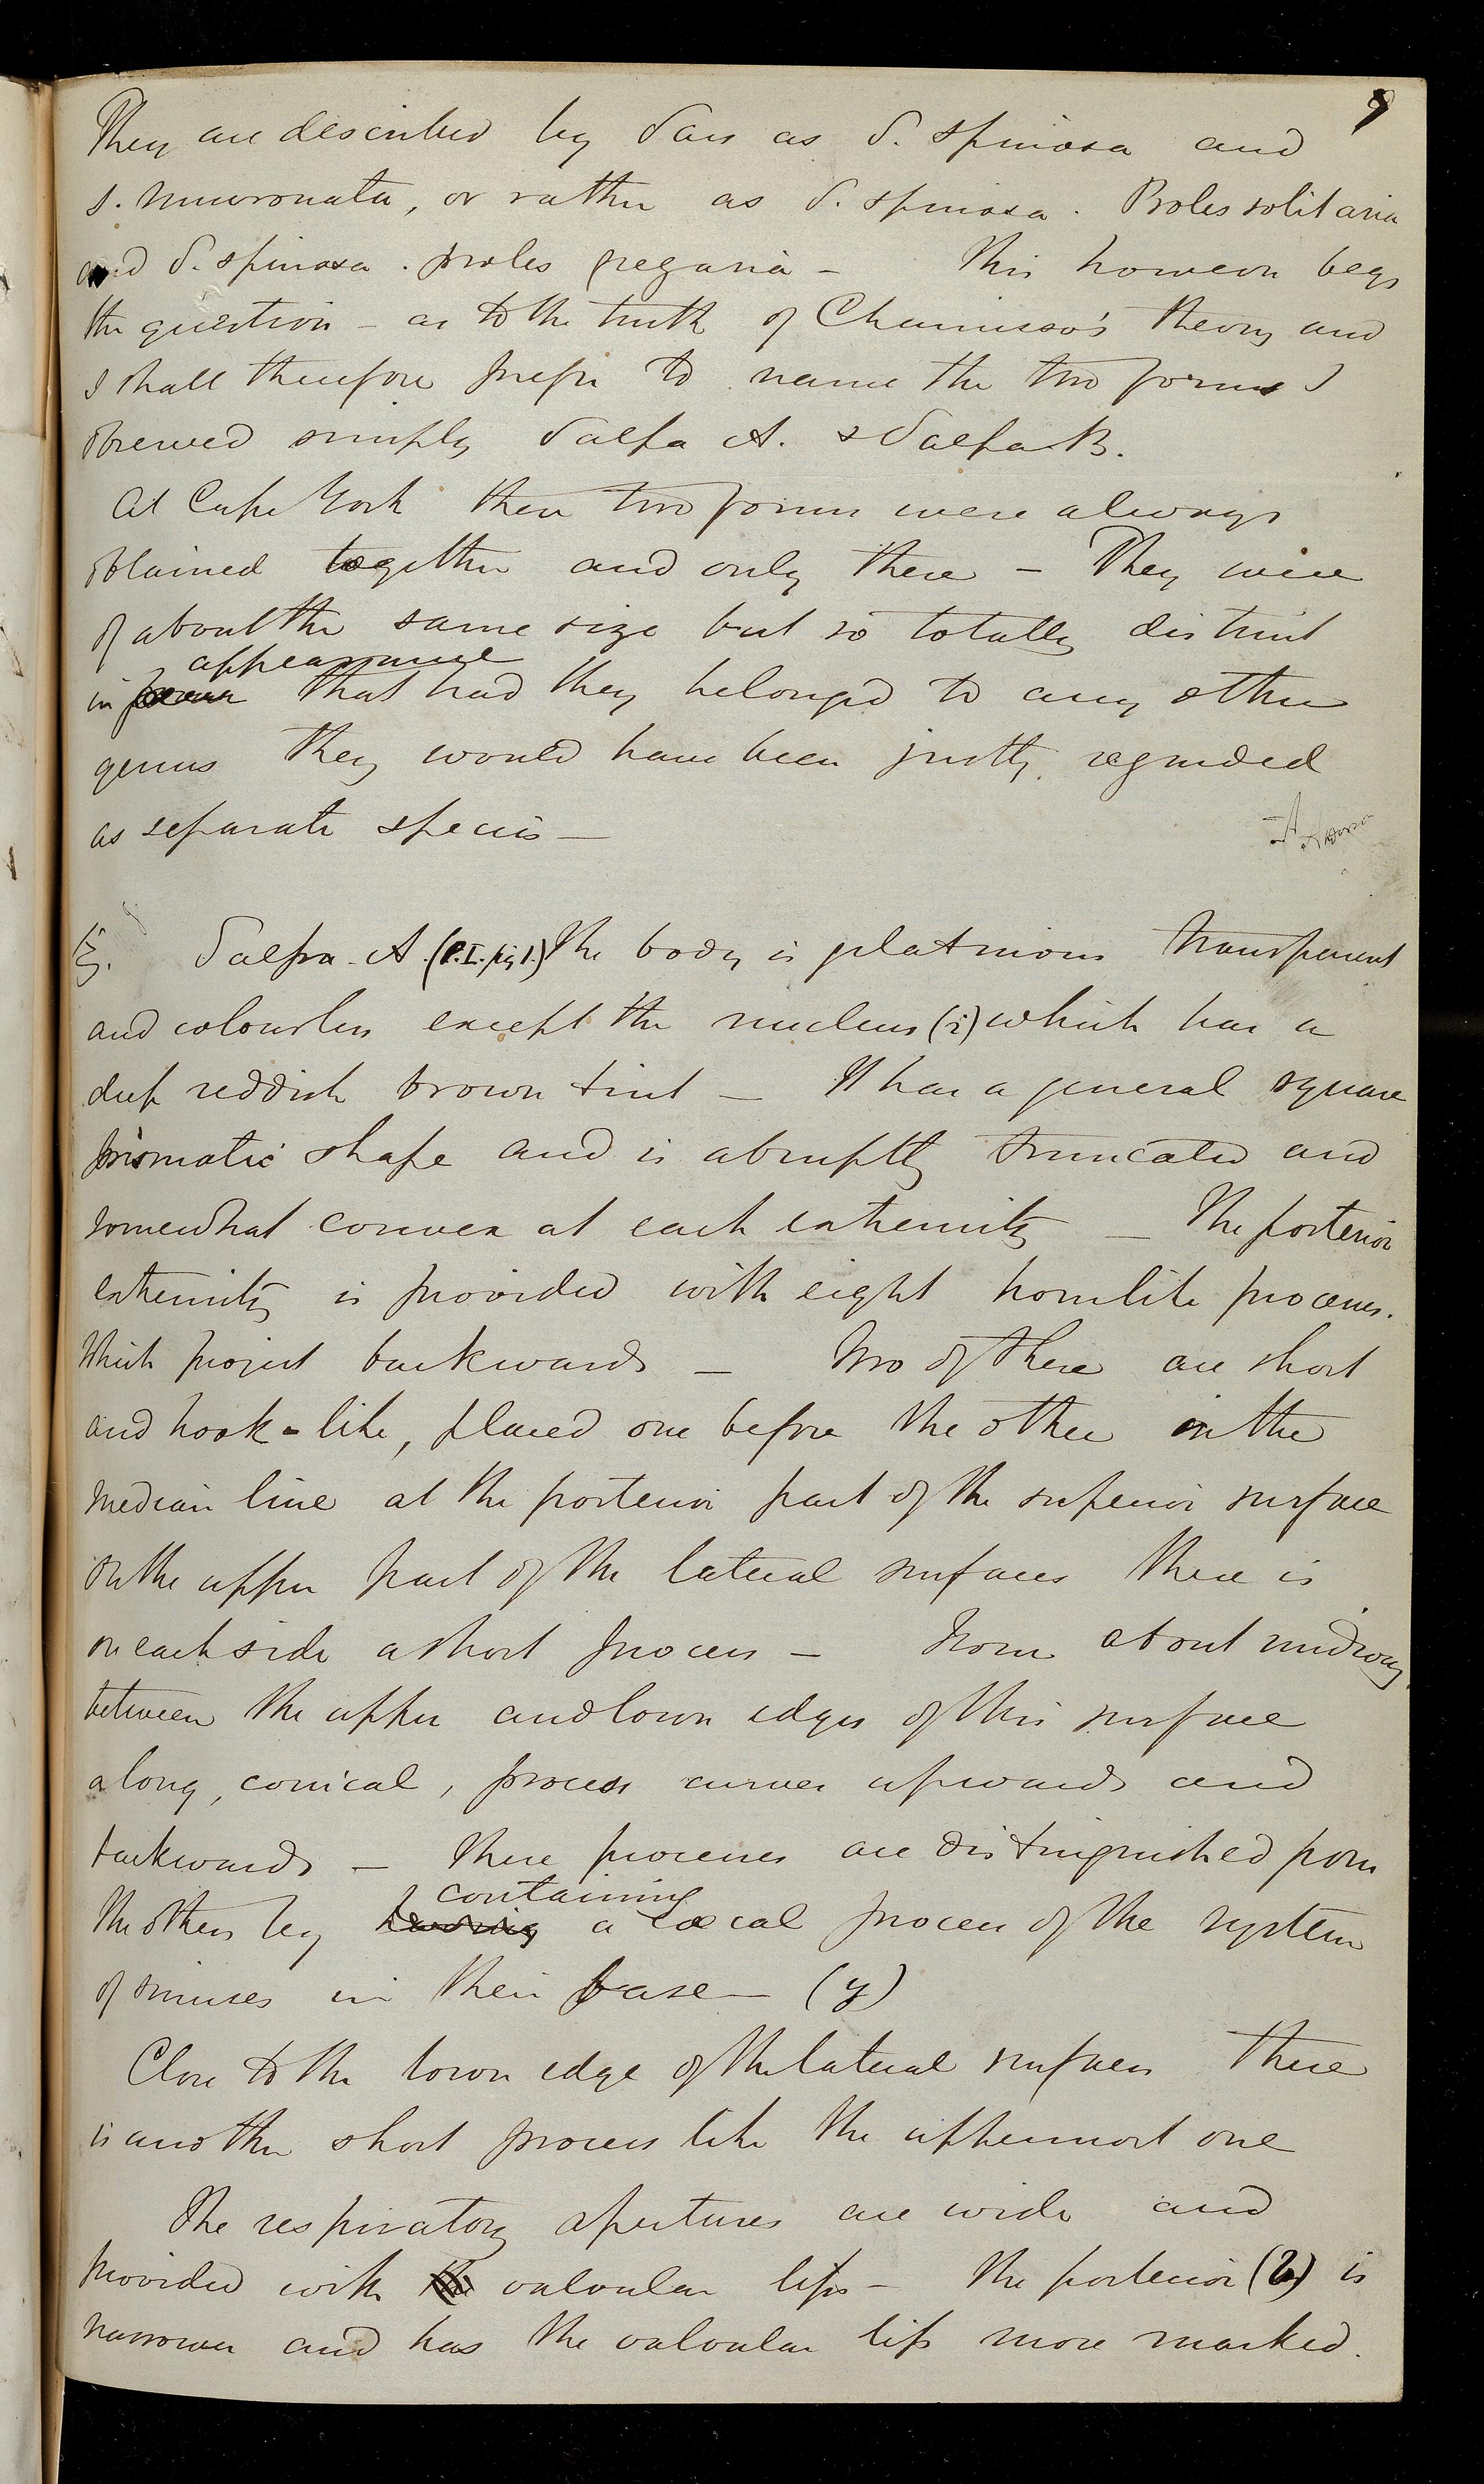 9
They are described by Sars as S. spinosa and
S. mucronata, or rather as S. spinosa. Proles solitaria
and S. spinosa. proles gregaria — This however begs
the question — as to the truth of Chamisso's theory and
I shall therefore prefer to name the two forms I
observed simply Salpa A. & Salpa B.
At Cape York these two forms were always
obtained together and only there — They were
of about the same size but so totally distinct
appearance
in that had they belonged to any other
genus they would have been justly regarded
as separate species —
Salpa. A. (P.I. fig 1.) The body is gelatinous transparent
and colourless except the nucleus (i) which has a
deep reddish brown tint — It has a general square
prismatic shape and is abruptly truncated and
somewhat convex at each extremity — The posterior
extremity is provided with eight hornlike processes.
Which project backwards — Two of these are short
and hook-like, placed one before the other in the
median line at the posterior part of the superior surface
On the upper part of the lateral surfaces there is
on each side a short process — From about midway
between the upper and lower edges of this surface
a long, conical, process curves upwards and
backwards — These processes are distinguished from
containing
the others by having a cœcal process of the system
of sinuses in their base — (y)
Close to the lower edge of the lateral surfaces there
is another short process like the uppermost one
The respiratory apertures are wide and
provided with the valvular lips — The posterior (b) is
narrower and has the valvular lips more marked.